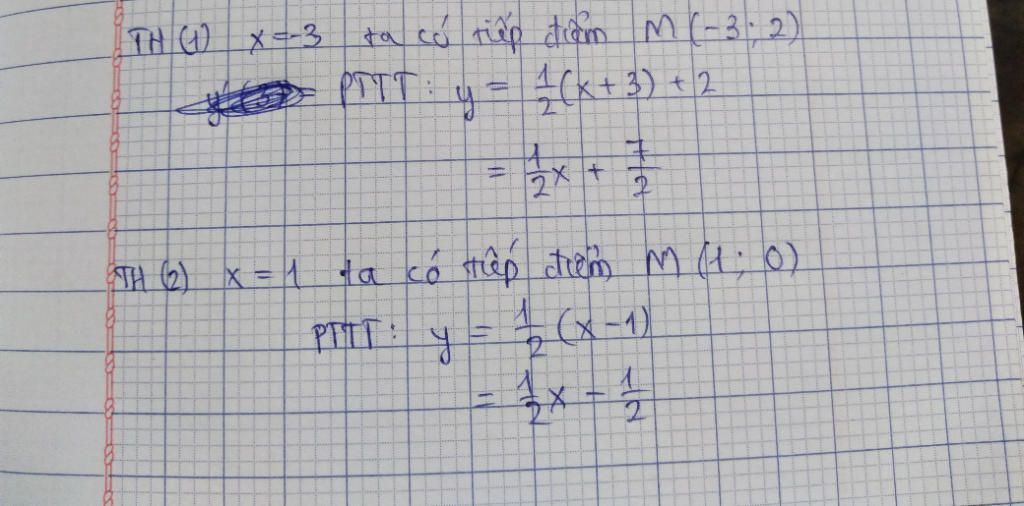 TH (1) x = -3 ta có tiếp điểm M (-3; 2)
PTTT: y = 1/2 (x + 3) + 2
= 1/2 x + 7/2
TH (2) x = 1 ta có tiếp điểm M (1; 0)
PTTT: y = 1/2 (x - 1)
= 1/2 x - 1/2